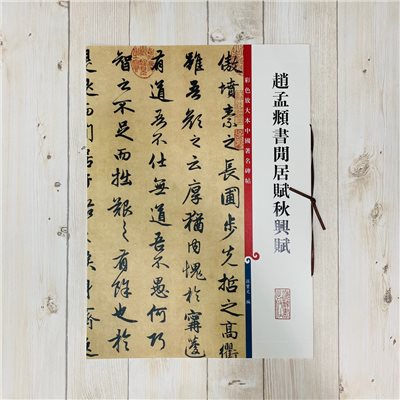 趙孟頫書閒居賦秋興賦
彩色放大本中國著名碑帖
孫寶文 編
傲墳素之長圃步先哲之高衢
雖吾顏之云厚猶內愧於甯蘧
有道吾不仕無道吾不愚何巧
智之不足而拙艱之有餘也